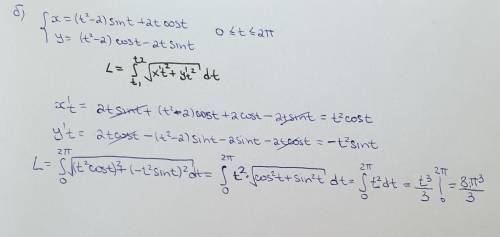 б) { x = (t²-2) sint + 2t cost
y = (t²-2) cost - 2t sint 0 ≤ t ≤ 2π
L = ∫_{t₁}^{t₂} √(x't² + y't²) dt
x't = 2t sint + (t²-2) cost + 2cost - 2t sint = t² cost
y't = 2t cost - (t²-2) sint - 2sint - 2t cost = -t² sint
L = ∫_0^{2π} √((t² cost)² + (-t² sint)²) dt = ∫_0^{2π} t² · √(cos²t + sin²t) dt = ∫_0^{2π} t² dt = t³/3 |_0^{2π} = 8π³/3